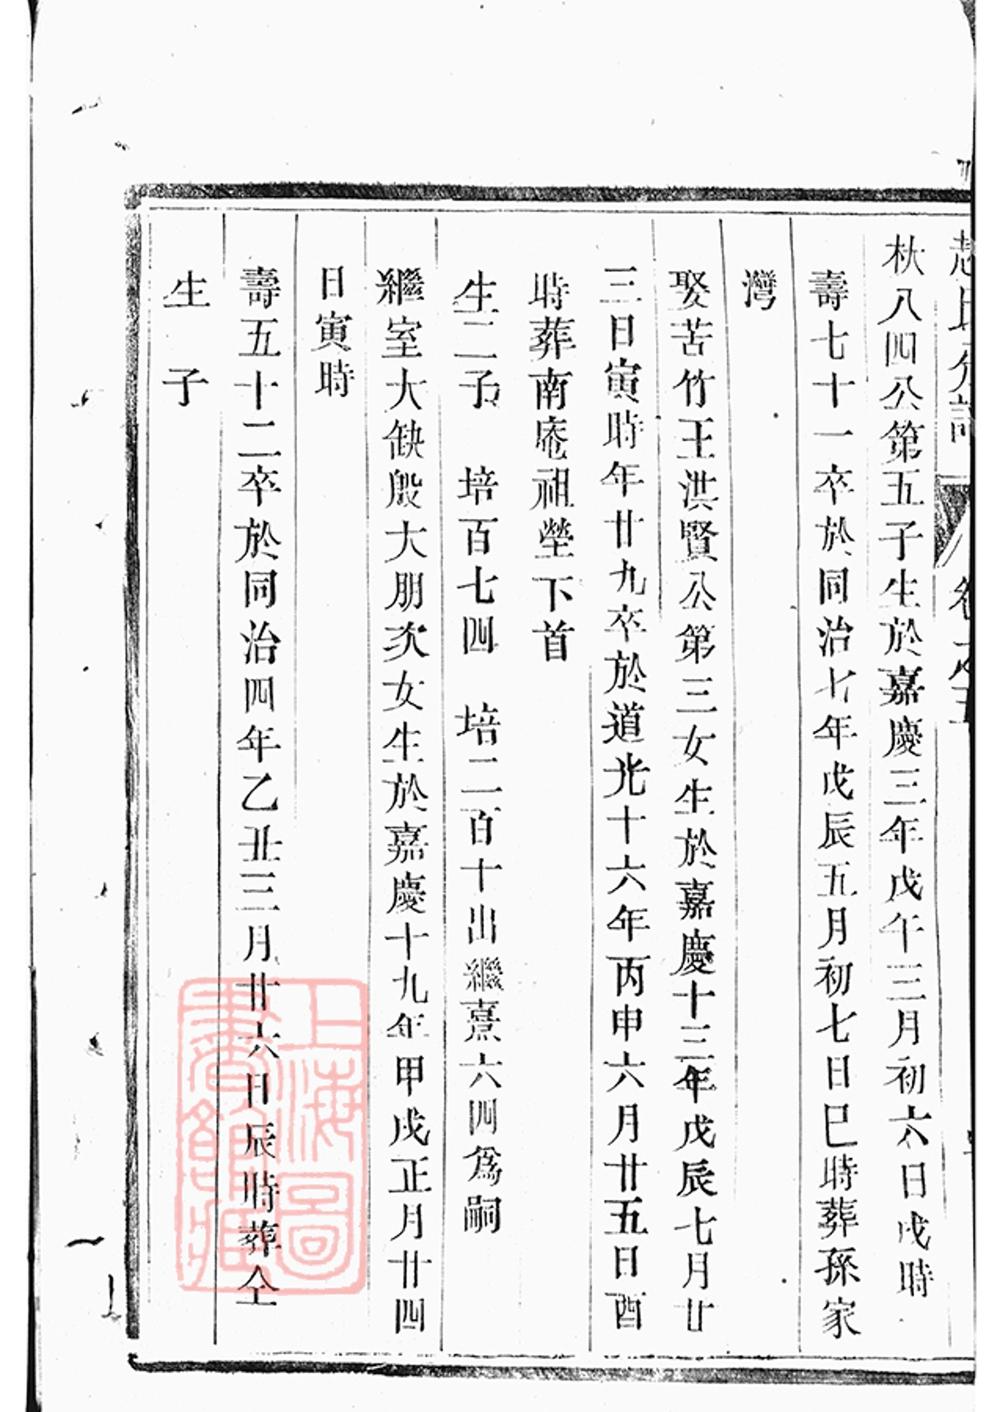 趙氏分譜 卷之五
杕八四公第五子生於嘉慶三年戊午三月初六日戌時
壽七十一卒於同治七年戊辰五月初七日巳時葬孫家
灣
娶苦竹王洪賢公第三女生於嘉慶十三年戊辰七月廿
三日寅時年廿九卒於道光十六年丙申六月廿五日酉
時葬南庵祖塋下首
生二子 培百七四 培二百十出繼熹六四為嗣
繼室大缺殷大朋次女生於嘉慶十九年甲戌正月廿四
日寅時
壽五十二卒於同治四年乙丑三月廿六日辰時葬仝
生子
上海圖書館藏